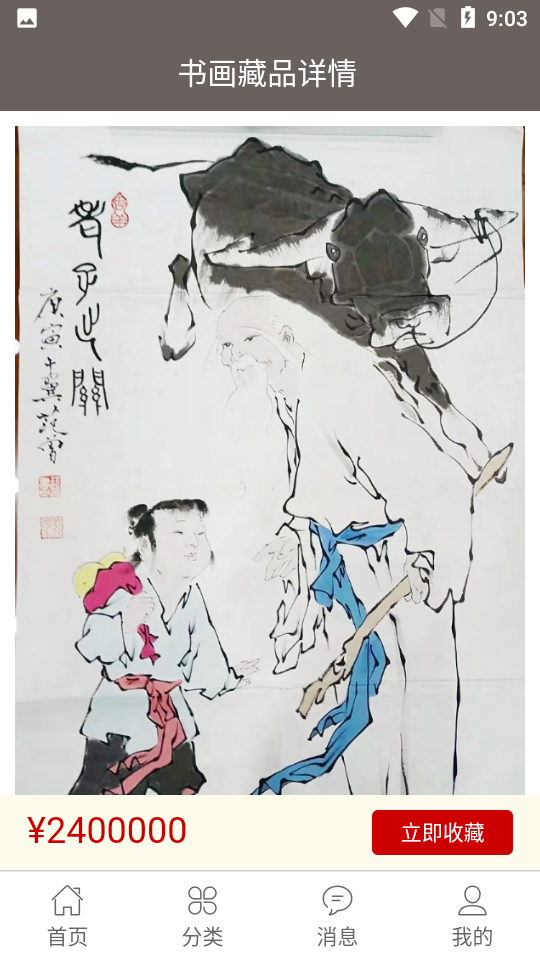 9:03
书画藏品详情
老子出關
庚寅十翼范曾
¥2400000
立即收藏
首页
分类
消息
我的